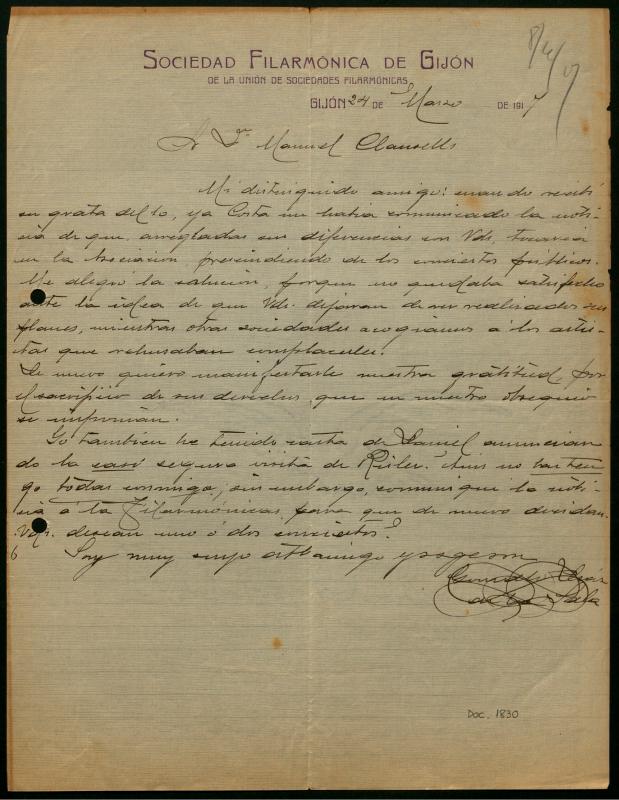 8/4/17
SOCIEDAD FILARMÓNICA DE GIJÓN
DE LA UNIÓN DE SOCIEDADES FILARMÓNICAS
GIJÓN 24 DE Marzo DE 1917
Sr. Dn. Manuel Clausells
Mi distinguido amigo: cuando recibí
su grata del 10, ya Costa me había comunicado la noti-
cia de que, arregladas sus diferencias con Vds, tocaría
en la Asociación, prescindiendo de los conciertos públicos.
Me alegró la solución, porque no quedaba satisfecho
ante la idea de que Vds. dejaran de ver realizados sus
planes, mientras otras sociedades acogíamos a los artis-
tas que rehusaban complacerles.
De nuevo quiero manifestarle nuestra gratitud por
el sacrificio de sus derechos, que en nuestro obsequio
se imponían.
Yo también he tenido carta de Daniel anuncian
do la casi segura visita de Risler. Aun no las ten
go todas conmigo; sin embargo, comuniqué la noti-
cia a las Filarmónicas, para que de nuevo decidan.
Vds. desean uno ó dos conciertos?
Soy muy suyo afmo amigo
6
de la
Doc. 1830